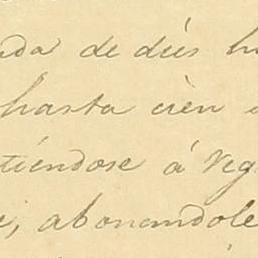 nda de diés h
hasta cièn
tiéndose á reg
e, abonandole